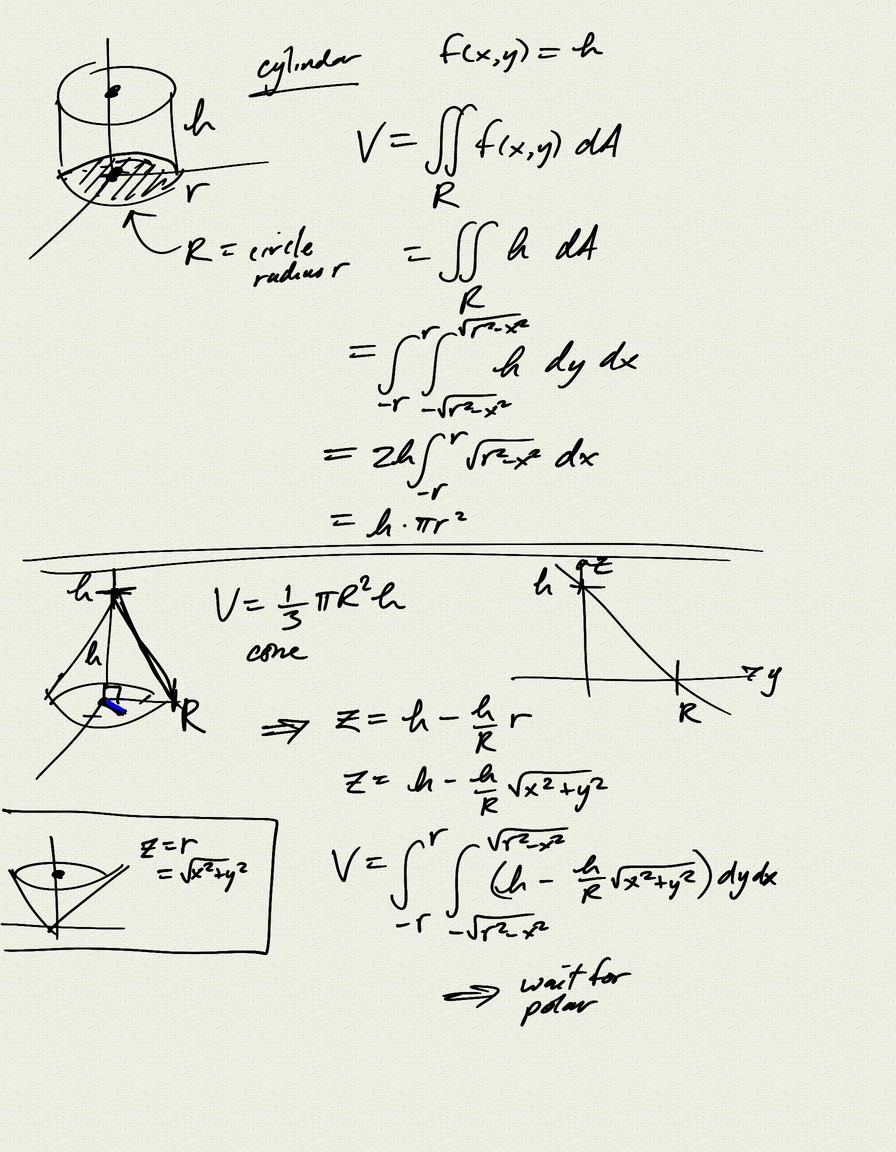 cylinder
f(x,y) = h
h
V = ∬_R f(x,y) dA
r
R = circle
radius r
= ∬_R h dA
= ∫_{-r}^{r} ∫_{-√(r²-x²)}^{√(r²-x²)} h dy dx
= 2h ∫_{-r}^{r} √(r²-x²) dx
= h · πr²
h
V = 1/3 πR²h
cone
h
R
h
z
y
R
⇒ z = h - h/R r
z = h - h/R √(x²+y²)
z = r
= √(x²+y²)
V = ∫_{-r}^{r} ∫_{-√(r²-x²)}^{√(r²-x²)} (h - h/R √(x²+y²)) dy dx
⇒ wait for
polar